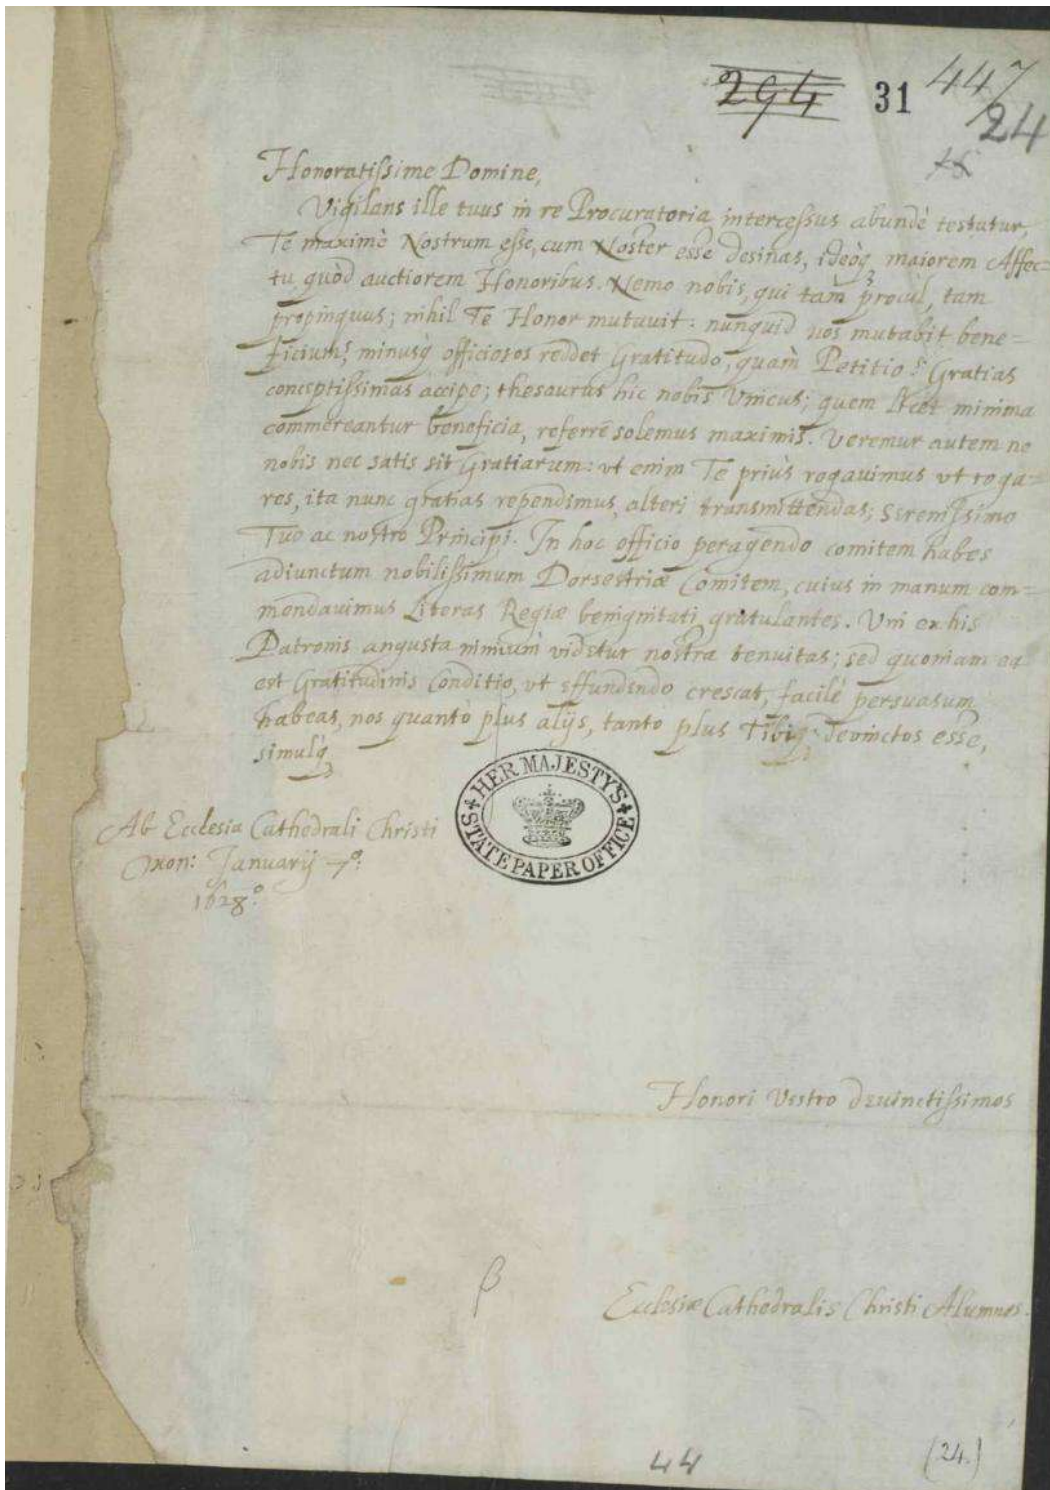 294 31 447
24
Honoratissime Domine,
Vigilans ille tuus in re Procuratoria intercessus abundè testatur,
Te maximè Nostrum esse, cum Noster esse desinas, ideòq maiorem Affec=
tu, quòd auctiorem Honoribus. Nemo nobis, qui tàm procùl, tam
propinquus; nihil Te Honor mutauit: nunquid nos mutabit bene=
ficium? minusq officiosos reddet Gratitudo, quàm Petitio? Gratias
conceptissimas accipe; thesaurus hic nobis Vnicus; quem licet minima
commereantur beneficia, referrē solemus maximis. Veremur autem ne
nobis nec satis sit Gratiarum: vt enim Te priùs rogauimus vt roga=
res, ita nunc gratias rependimus, alteri transmittendas; Serenissimo
Tuo ac nostro Principi. In hoc officio peragendo comitem habes
adiunctum nobilissimum Dorsestriæ Comitem, cuius in manum com=
mendauimus Literas Regiæ benignitati gratulantes. Vni ex his
Patronis angusta nimiùm videtur nostra tenuitas; sed quoniam ea
est Gratitudinis Conditio, vt effundendo crescat, facilè persuasum
habeas, nos quantò plus alijs, tanto plus Tibiq deuinctos esse,
simulq
HER MAJESTY'S
STATE PAPER OFFICE
Ab Ecclesia Cathedrali Christi
Oxon: Januarij 7º:
1628º
Honori Vestro deuinctissimos
Ecclesiæ Cathedralis Christi Alumnos.
44 (24.)